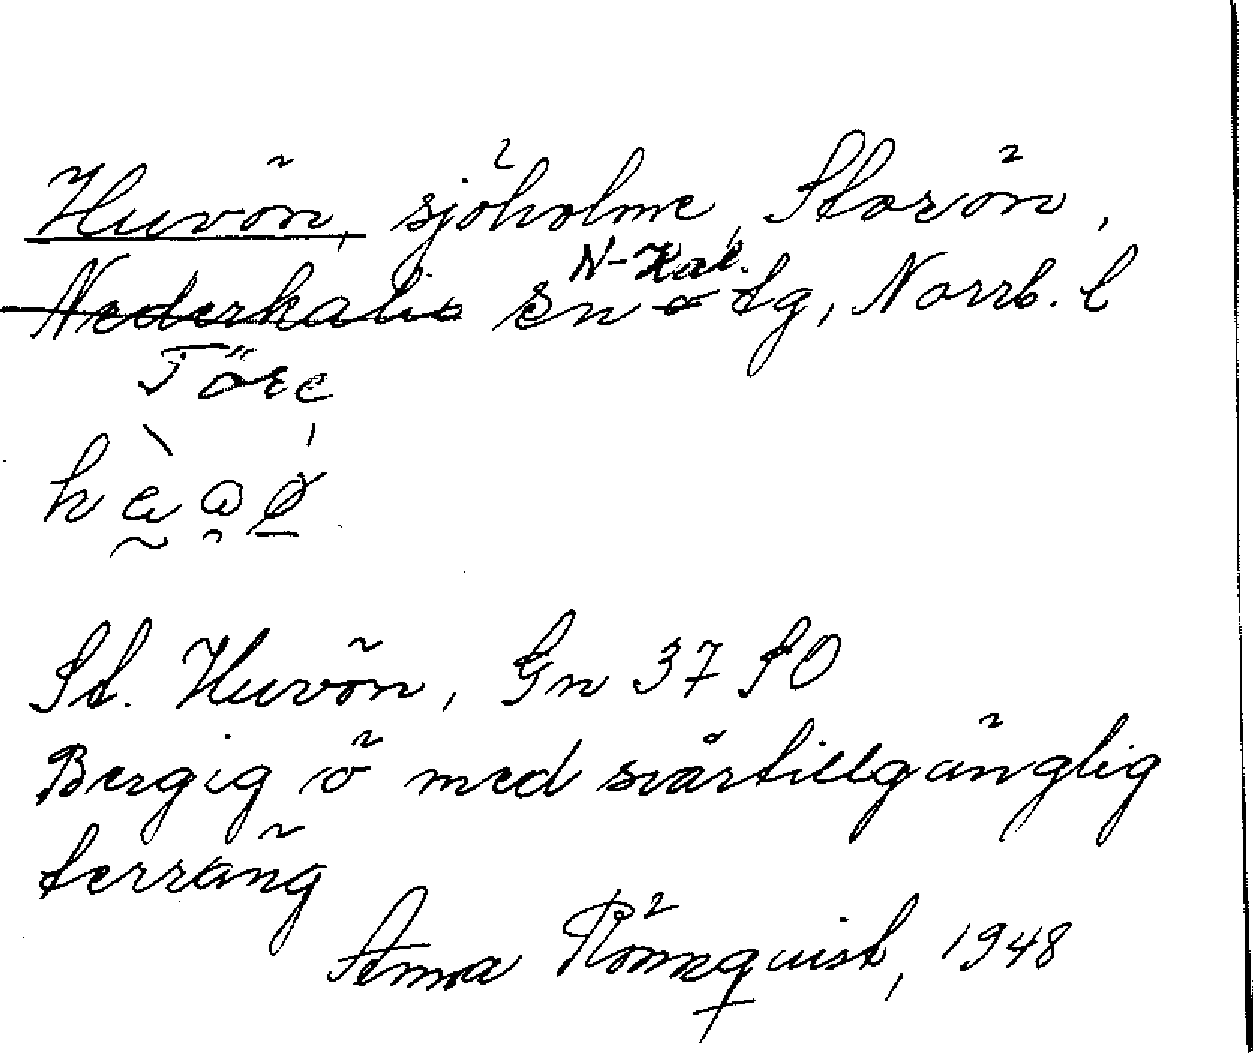 Huvön, sjöholme, Storön,
N-Kal.
Nederkalix sn o tg, Norrb. l
Töre
St. Huvön, Gn 37 SO
Bergig ö med svårtillgänglig
terräng
Anna Rönnquist, 1948